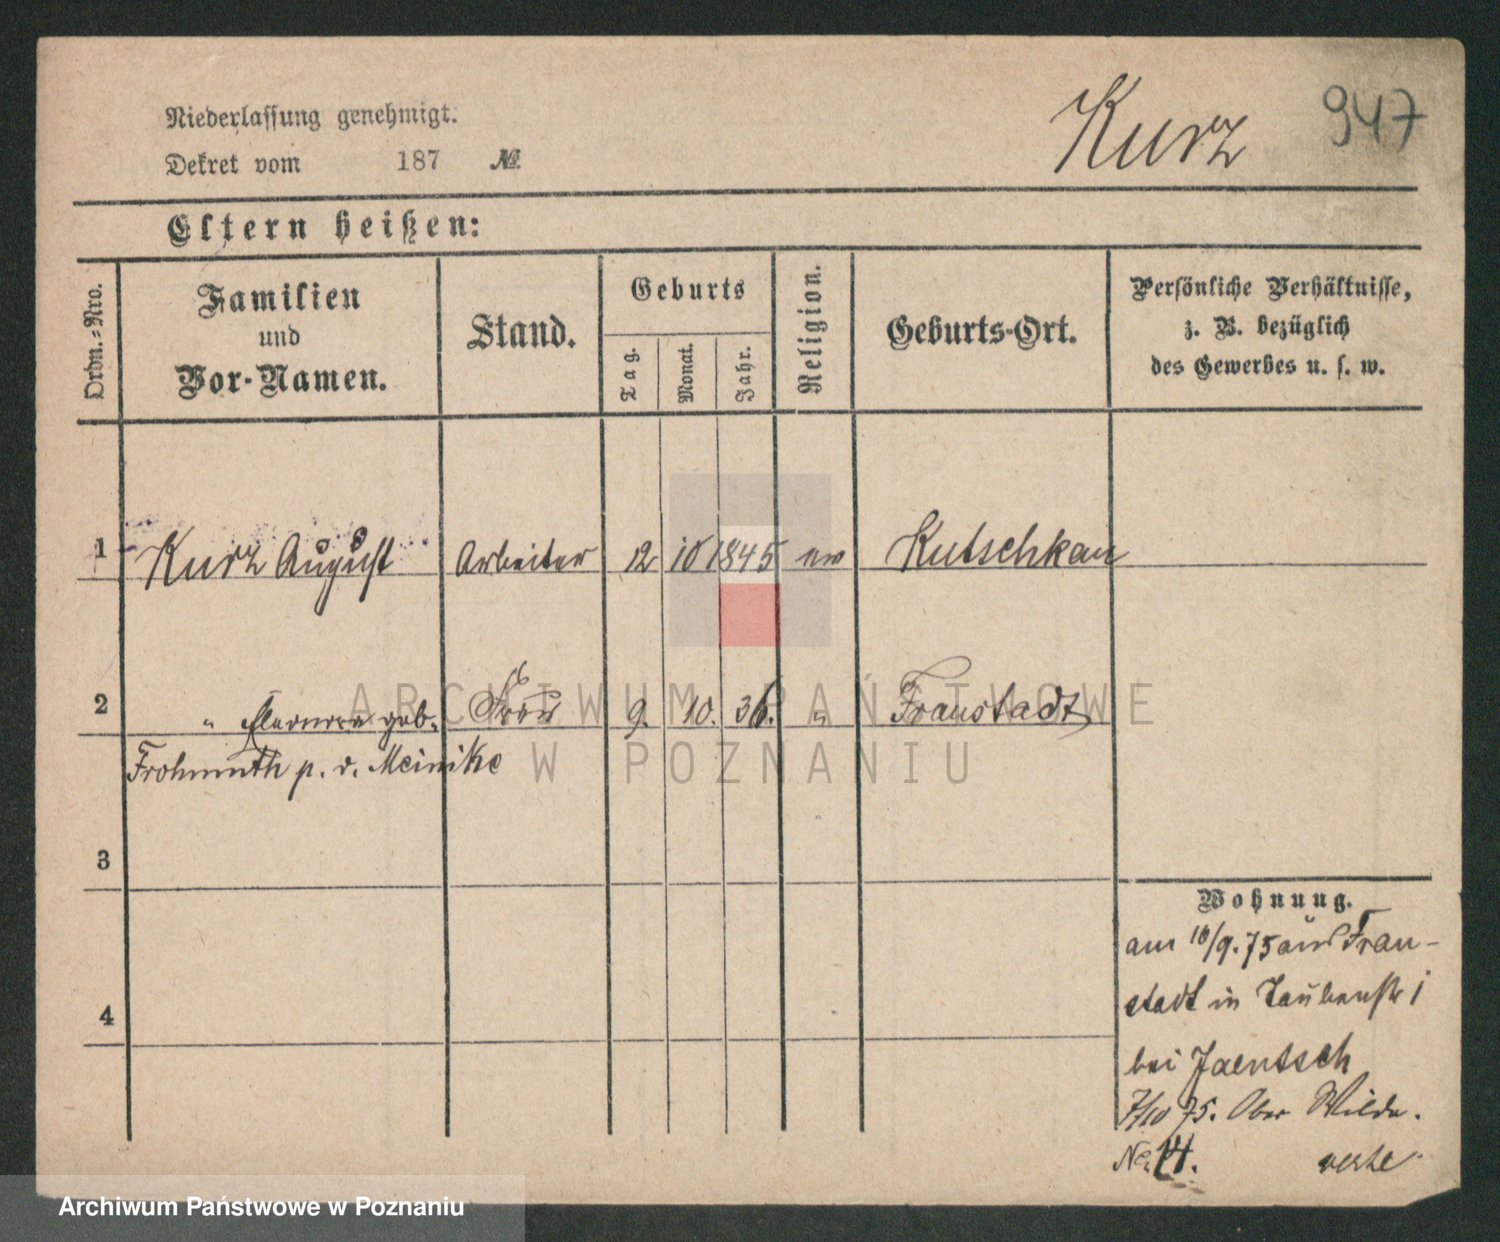 Kurz 947
Niederlassung genehmigt.
Dekret vom 187 №
Eltern heißen:
Ordn.-Nro.
Familien
und
Vor-Namen.
Stand.
Geburts
Tag.
Monat.
Jahr.
Religion.
Geburts-Ort.
Persönliche Verhältnisse,
z. B. bezüglich
des Gewerbes u. s. w.
1 Kurz August Arbeiter 12 10 1845 ev Kutschkau
2 " geb. Frau 9. 10. 36. " Fraustadt
Frohmuth p. v. Meinike
3
4
Wohnung.
am 10/9. 75 aus Frau-
stadt in Taubenstr 1
bei Jaentsch
7/10 75. Ober Wilda.
No. 14. verte
ARCHIWUM PAŃSTWOWE
W POZNANIU
Archiwum Państwowe w Poznaniu